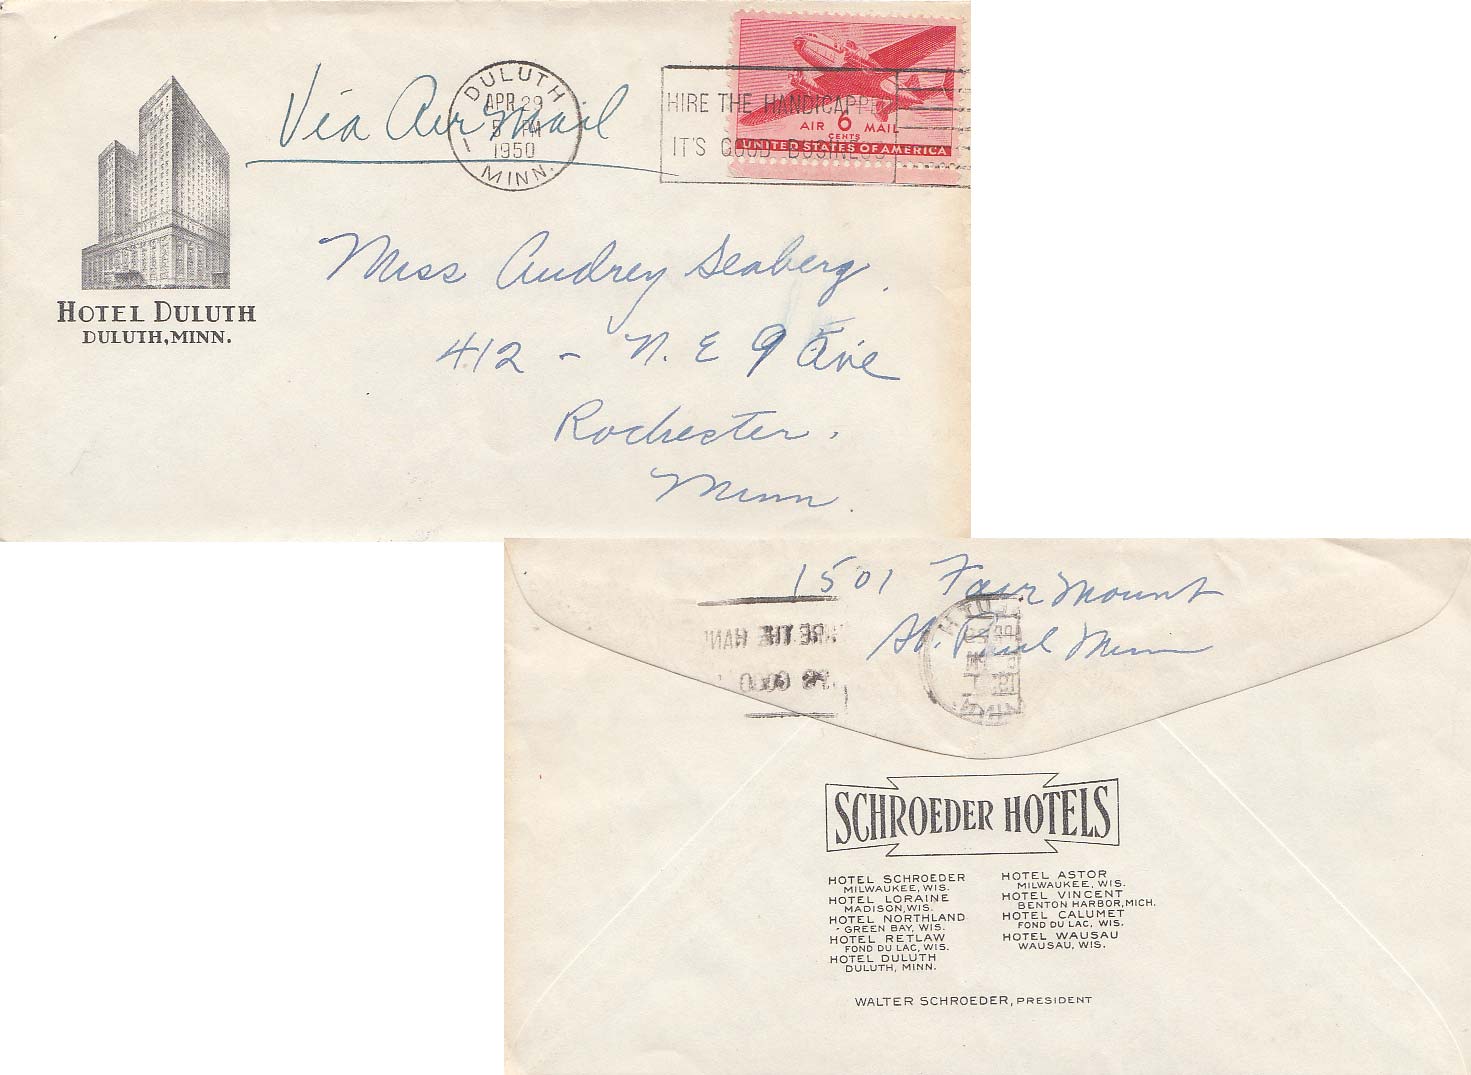 Via Air Mail
DULUTH
APR 29
5 PM
1950
MINN.
1
HIRE THE HANDICAPPED
IT'S GOOD BUSINESS
6
CENTS
AIR MAIL
UNITED STATES OF AMERICA
HOTEL DULUTH
DULUTH, MINN.
Miss Audrey Seaberg.
412 - N. E 9 Ave
Rochester.
Minn.
1501 Fairmount
St. Paul Minn
SCHROEDER HOTELS
HOTEL SCHROEDER
MILWAUKEE, WIS.
HOTEL LORAINE
MADISON, WIS.
HOTEL NORTHLAND
GREEN BAY, WIS.
HOTEL RETLAW
FOND DU LAC, WIS.
HOTEL DULUTH
DULUTH, MINN.
HOTEL ASTOR
MILWAUKEE, WIS.
HOTEL VINCENT
BENTON HARBOR, MICH.
HOTEL CALUMET
FOND DU LAC, WIS.
HOTEL WAUSAU
WAUSAU, WIS.
WALTER SCHROEDER, PRESIDENT